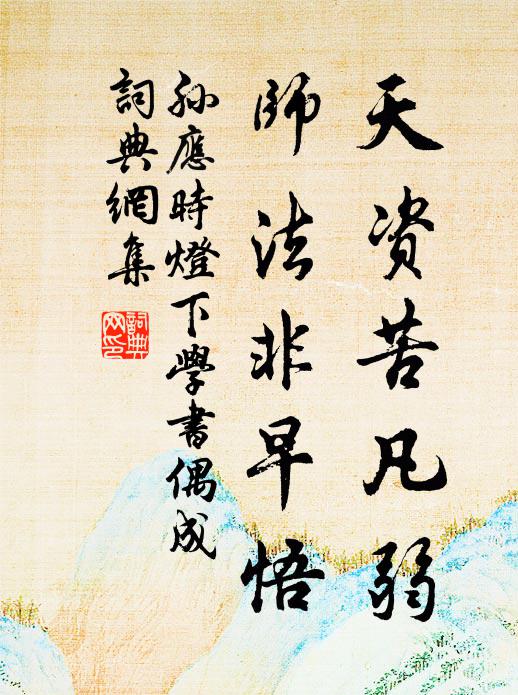 天资苦凡弱
師法非早悟
孙應時燈下學書偶成
詞典網集
詞典
网印